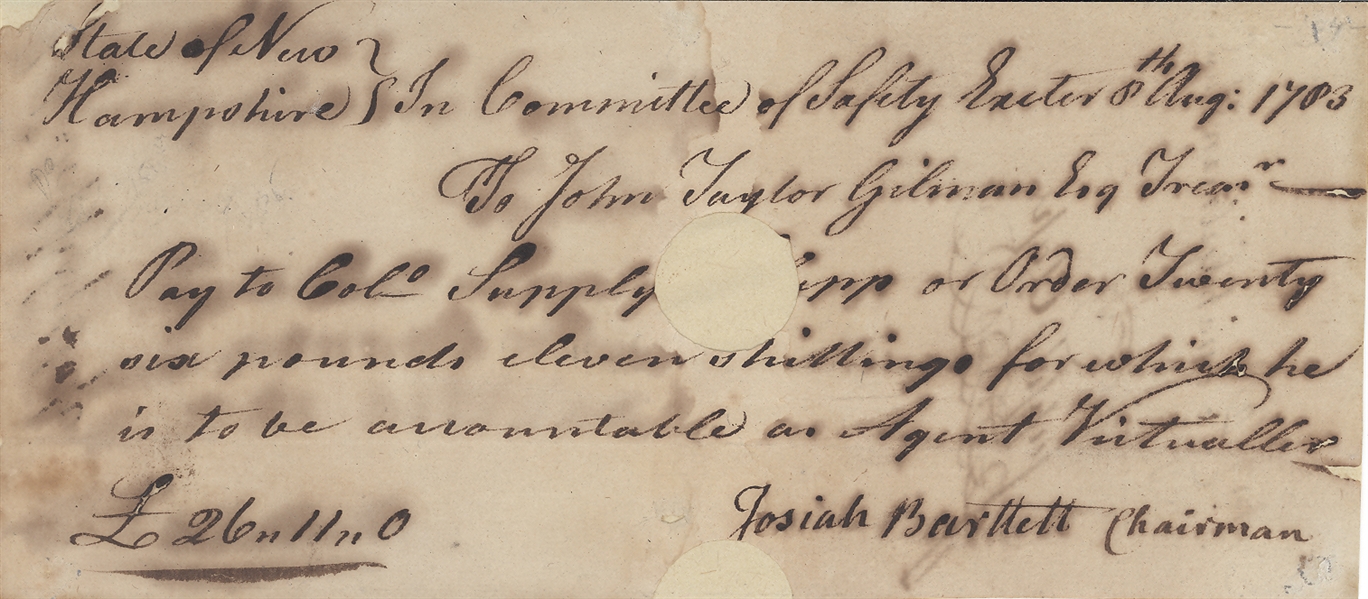 State of New
Hampshire } In Committee of Safety Exeter 8th Aug: 1783
To John Taylor Gilman Esq Treasr
Pay to Colo Supply epp or Order Twenty
six pounds eleven shillings for which he
is to be accountable as Agent Victualler
£ 26 " 11 " 0
Josiah Bartlett Chairman